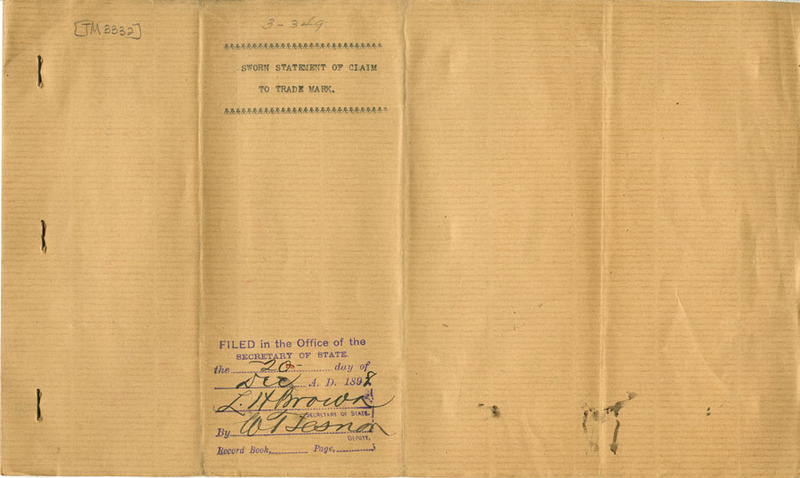 [TM 3332]
3-349
SWORN STATEMENT OF CLAIM
TO TRADE MARK.
FILED in the Office of the
SECRETARY OF STATE.
the 20 day of
Dec A. D. 1898
L. H. Brown
SECRETARY OF STATE.
By W. T.
DEPUTY.
Record Book, Page,